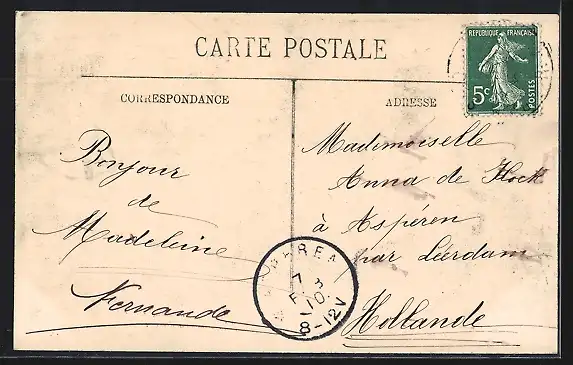 CARTE POSTALE
CORRESPONDANCE
ADRESSE
REPUBLIQUE FRANÇAISE
5c
POSTES
Bonjour
de
Madeleine
Fernande
Mademoiselle
Anna de Kock
à Aspéren
par Léerdam
Hollande
8-12V